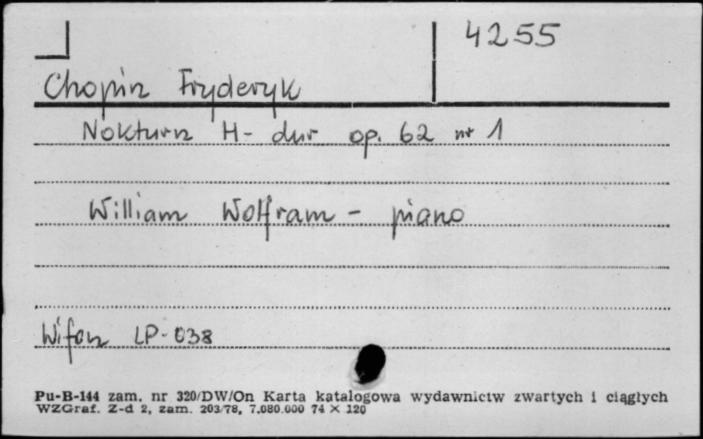 4255
Chopin Fryderyk
Nokturn H-dur op. 62 nr 1
William Wolfram - piano
Wifon LP-038
Pu-B-144 zam. nr 320/DW/On Karta katalogowa wydawnictw zwartych i ciągłych
WZGraf. Z-d 2, zam. 203/78, 7.080.000 74 × 120